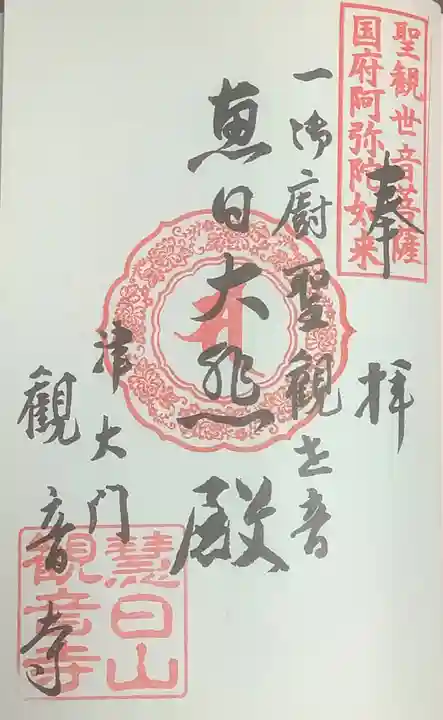 聖観世音菩薩
国府阿弥陀如来
奉拝
一御厨聖観世音
恵日大悲殿
津大門
観音寺
慧日山
観音寺